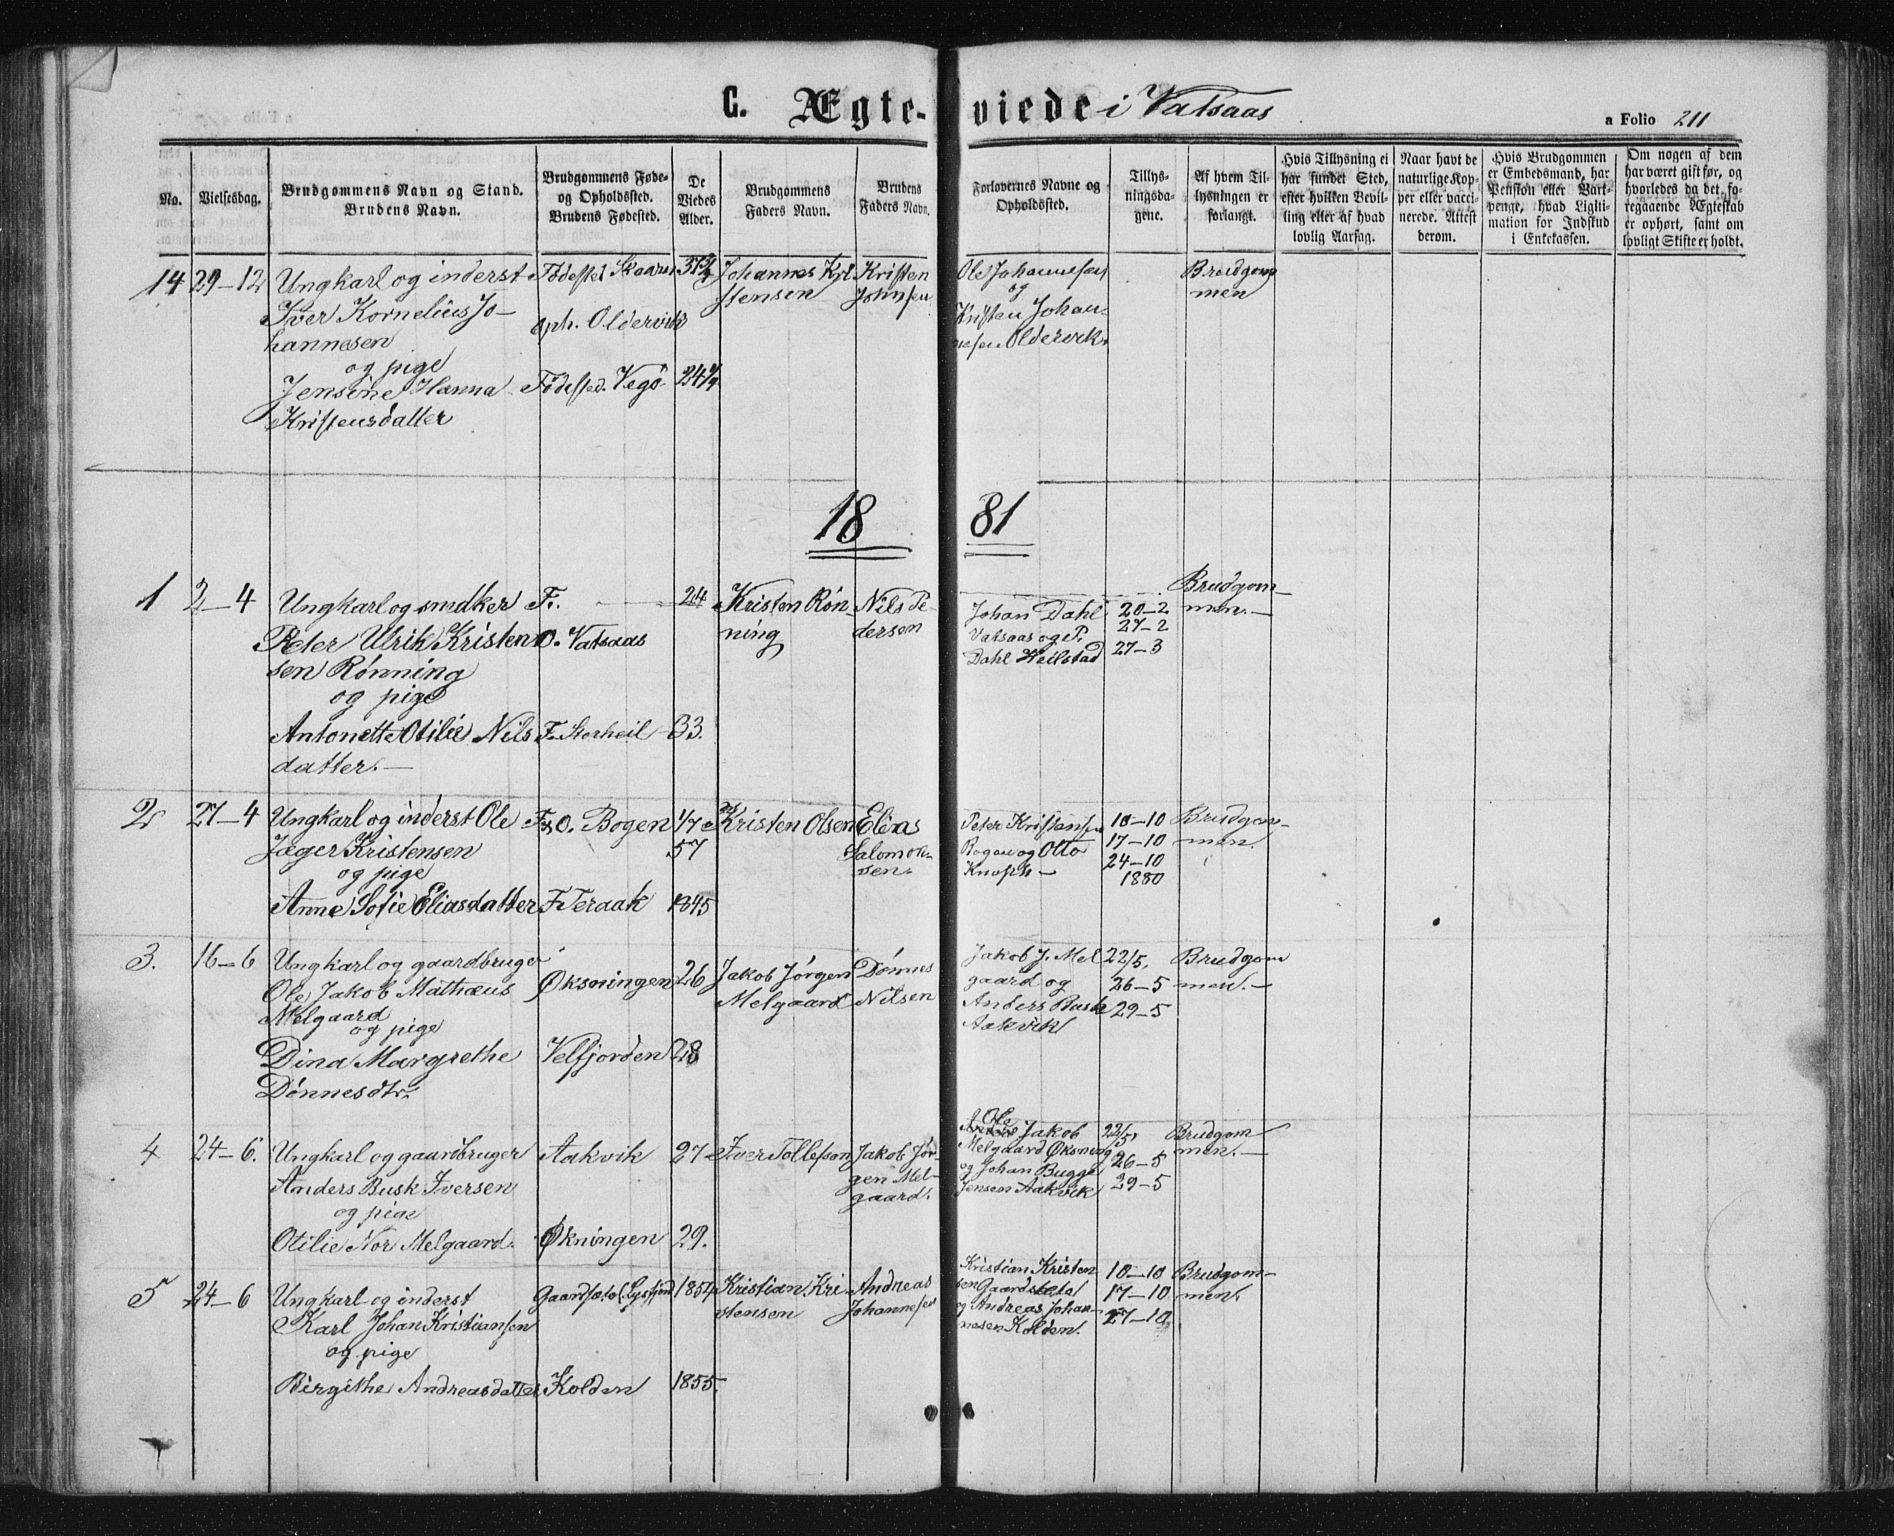 C. Ægte-viede i Vatsaas
a Folio 211
No.
Vielsesdag.
Brudgommens Navn og Stand.
Brudens Navn.
Brudgommens Føde-
og Opholdssted.
Brudens Fødested.
De
Viedes
Alder.
Brudgommens
Faders Navn.
Brudens
Faders Navn.
Forlovernes Navne og
Opholdssted.
Tillys-
ningsda-
gene.
Af hvem Til-
lysningen er
forlangt.
Hvis Tillysning ei
har fundet Sted,
efter hvilken Bevil-
ling eller af hvad
lovlig Aarsag.
Naar havt de
naturlige Kop-
per eller vacci-
nerede. Attest
derom.
Hvis Brudgommen
er Embedsmand, har
Pension eller Vart-
penge, hvad Ligiti-
mation for Indskud
i Enkekassen.
Om nogen af dem
har været gift før, og
hvorledes da det fo-
regaaende Ægteskab
er ophørt, samt om
lovligt Skifte er holdt.
14
29-12
Ungkarl og inderst
Iver Kornelius Jo-
hannesen
og pige
Jensine Hanna
Kristensdatter
Fødested Skaaren
oph. Oldervik
Fødested. Vegø
24 1/4
Johannes Kri
stensen
Kristen
Johnsen
Ole Johannesen
og
Kristen Johan-
nesen Oldervik
Brudgom
men
18 81
1
2-4
Ungkarl og snedker
Peter Ulrik Kristen
sen Rønning
og pige
Antonette Otilie Nils
datter.
F.
O. Vatsaas
F. Storheil
24
33.
Kristen Røn-
ning
Nils Pe-
dersen
Johan Dahl
Vatsaas og P.
Dahl Heilstad
20-2
27-2
27-3
Brudgom-
men.
2
27-4
Ungkarl og inderst Ole
Jæger Kristensen
og pige
Anne Sofie Eliasdatter
F. & O. Bogen
F. Teraak
1/7
57
1845
Kristen Olsen
Elias
Salomon-
sen.
Peter Kristensen
Bogen og Otto
Knoph
10-10
17-10
24-10
1880
Brudgom-
men.
3.
16-6
Ungkarl og gaardbruger
Ole Jakob Mathæus
Melgaard
og pige
Dina Margrethe
Dønnesdtr.
Øksningen
Velfjorden
26
28
Jakob Jørgen
Melgaard
Dønnes
Nilsen
Jakob J. Mel
gaard og
Anders Busk
Aakvik
22/5.
26-5
29-5
Brudgom
men.
4
24-6.
Ungkarl og gaardbruger
Anders Busk Iversen
og pige
Otilie Nor Melgaard.
Aakvik
Økningen
27
29.
Iver Tollefson
Jakob Jør-
gen Mel-
gaard.
Ole
Jakob
Melgaard Øksning
og Johan Bugge
Jensen Aakvik
22/5
26-5
29-5
Brudgom
men.
5
24-6
Ungkarl og inderst
Karl Johan Kristiansen
og pige
Birgithe Andreasdatter
Gaardsæte
Kolden
1854
1855.
Kristian Kri
stensen
Andreas
Johannesen
Kristian Kristen
sen Gaardsæte
og Andreas Johan-
nesen Kolden.
10-10
17-10
27-10
Brudgom-
men.